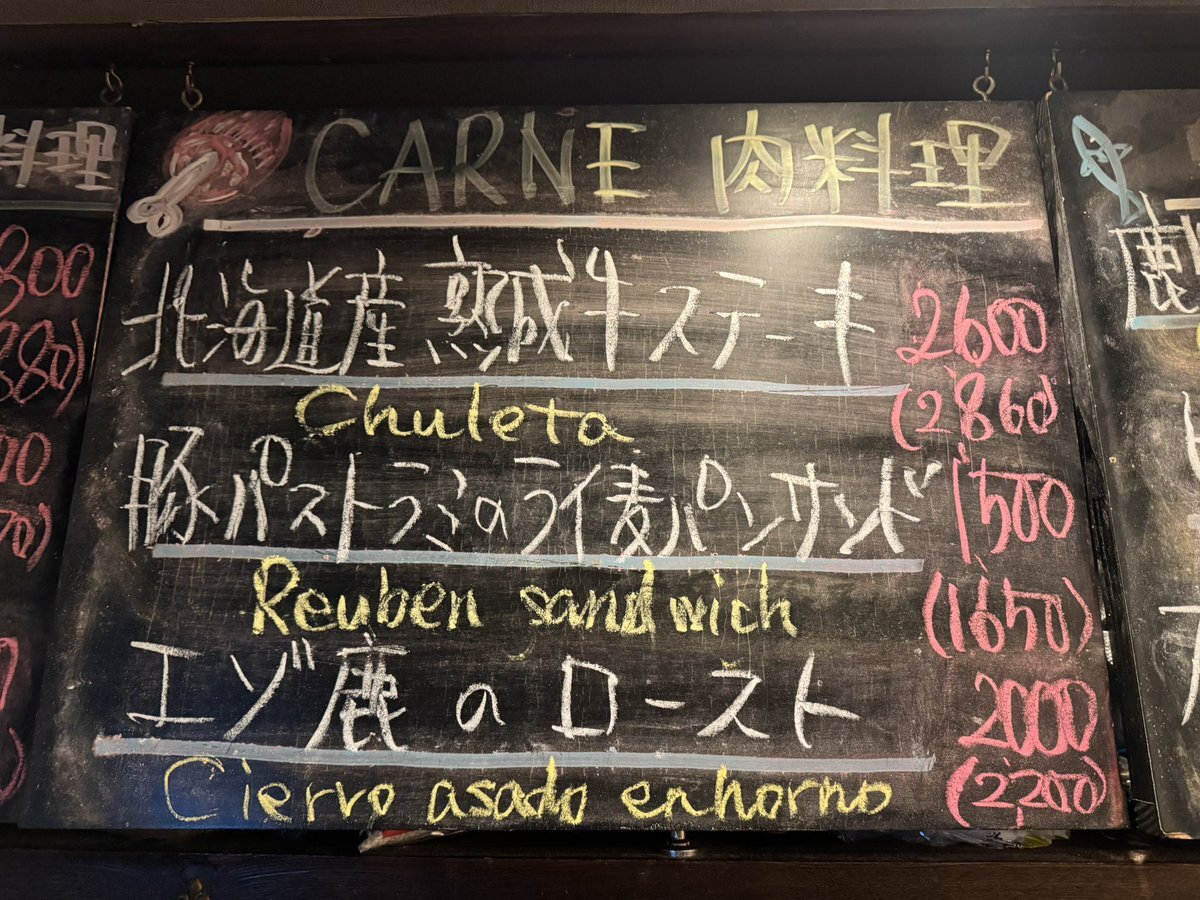 CARNE 肉料理
北海道産 熟成牛ステーキ 2600
Chuleta (2860)
豚パストラミのライ麦パンサンド 1500
Reuben sandwich (1650)
エゾ鹿のロースト 2000
Cierro asado enhorno (2,200)
料理
800
880)
鹿